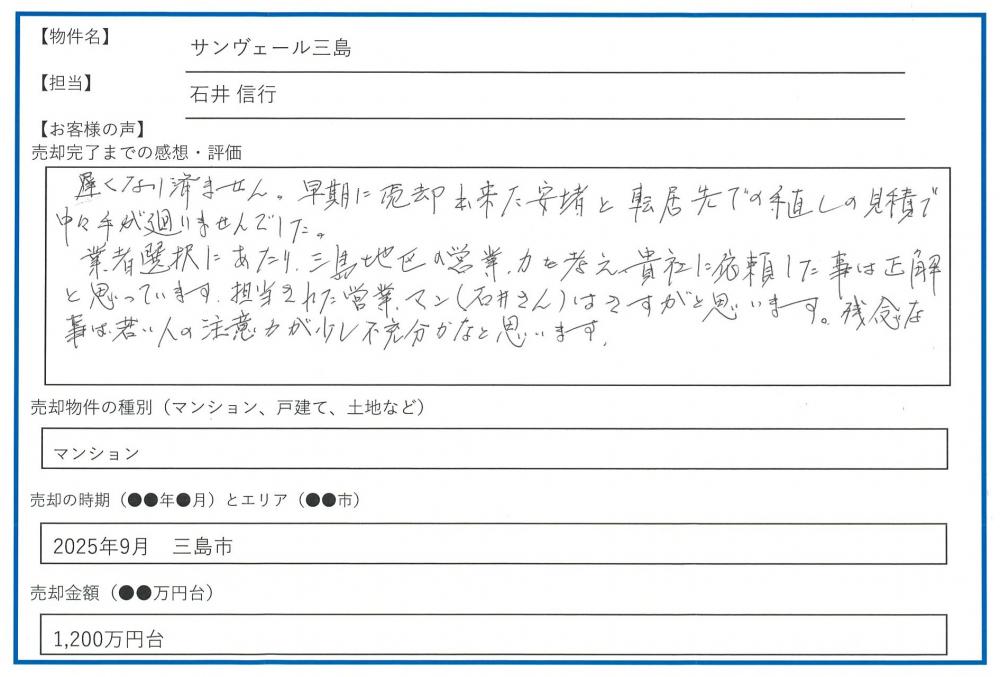 【物件名】
サンヴェール三島
【担当】
石井 信行
【お客様の声】
売却完了までの感想・評価
遅くなり済ません。早期に売却出来た安堵と転居先での手直しの見積で
中々手が廻いませんでした。
業者選択にあたり、三島地区の営業力を考え、貴社に依頼した事は正解
と思っています。担当された営業マン(石井さん)はさすがと思います。残念な
事は若い人の注意力が少し不充分かなと思います。
売却物件の種別（マンション、戸建て、土地など）
マンション
売却の時期（●●年●月）とエリア（●●市）
2025年9月　三島市
売却金額（●●万円台）
1,200万円台